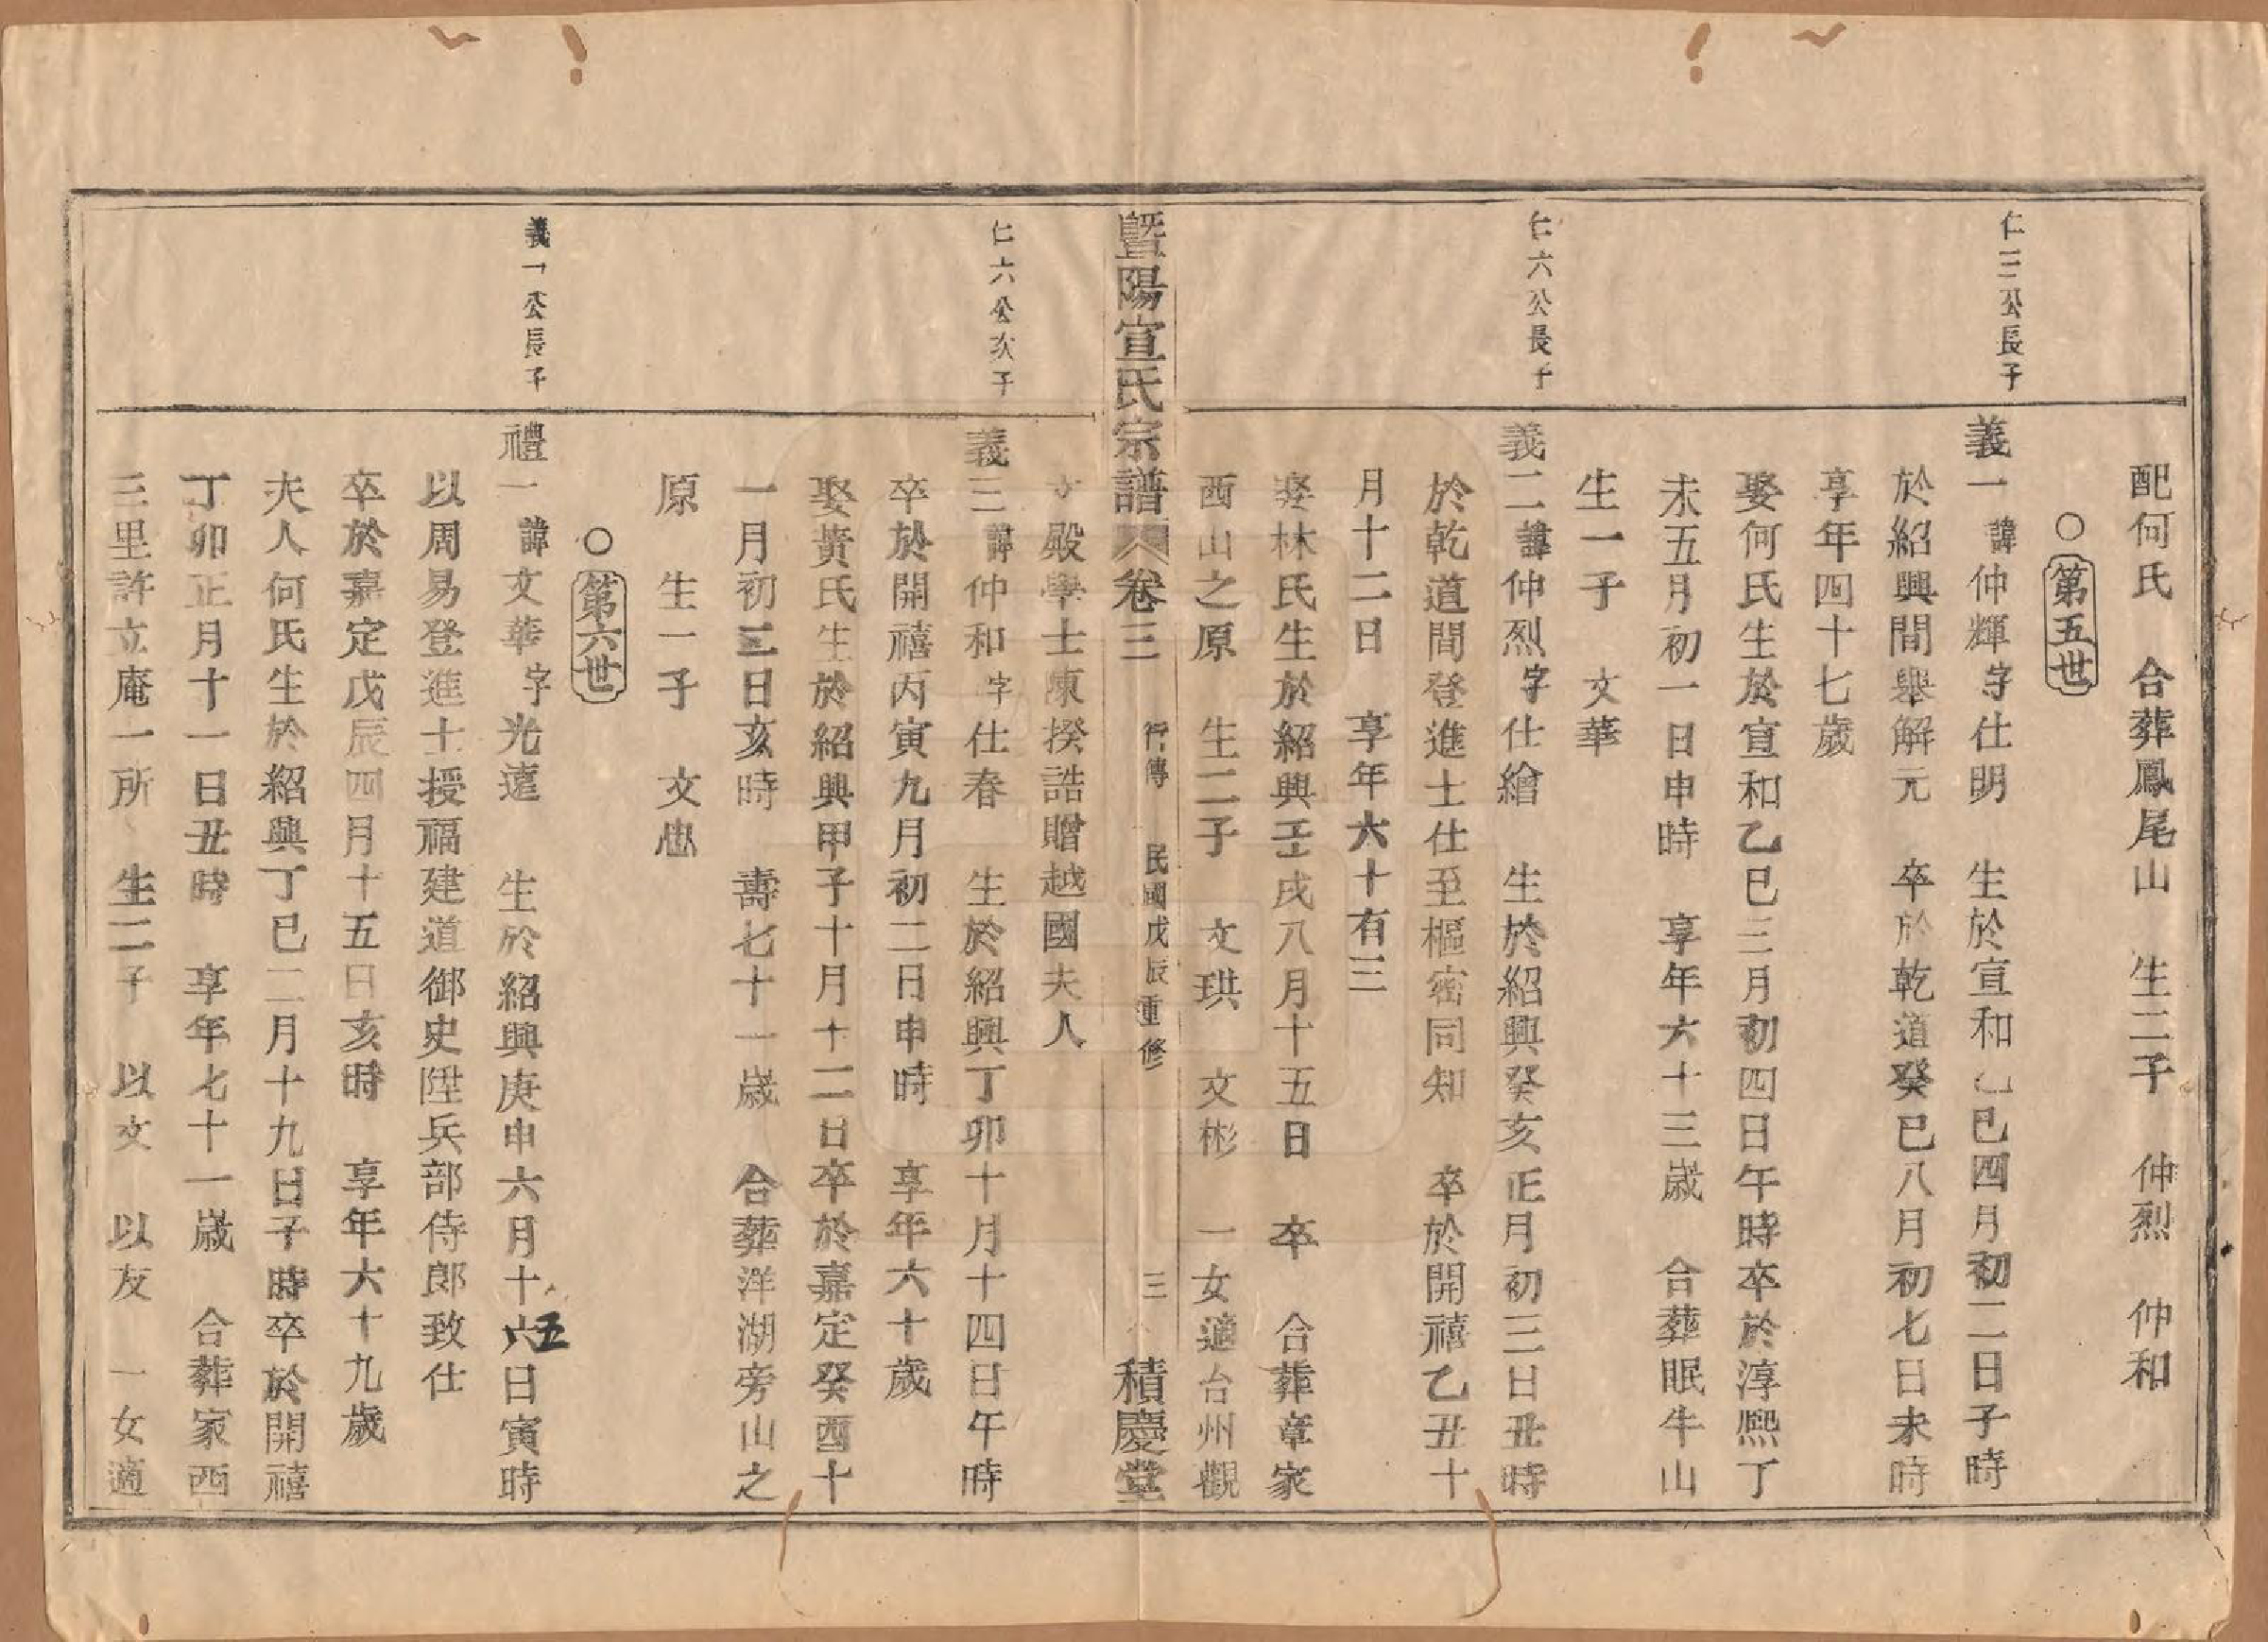 配何氏　合葬鳳尾山　生二子　仲烈　仲和
○第五世
仁三公長子
義一諱仲輝字仕明　生於宣和乙巳四月初二日子時
於紹興間舉解元　卒於乾道癸巳八月初七日未時
享年四十七歲
娶何氏生於宣和乙巳三月初四日午時卒於淳熙丁
未五月初一日申時　享年六十三歲　合葬眠牛山
生一子　文華
仁六公長子
義二諱仲烈字仕繪　生於紹興癸亥正月初三日丑時
於乾道間登進士仕至樞密同知　卒於開禧乙丑十
月十二日　享年六十有三
娶林氏生於紹興壬戌八月十五日　卒　合葬章家
西山之原　生二子　文珙　文彬　一女適台州觀
暨陽宣氏宗譜　卷三　行傳　民國戊辰重修　三　積慶堂
文殿學士陳揆誥贈越國夫人
仁六公次子
義三諱仲和字仕春　生於紹興丁卯十月十四日午時
卒於開禧丙寅九月初二日申時　享年六十歲
娶黃氏生於紹興甲子十月十二日卒於嘉定癸酉十
一月初三日亥時　壽七十一歲　合葬洋湖旁山之
原　生一子　文
○第六世
義一公長子
禮一諱文華字光遠　生於紹興庚申六月十六五日寅時
以周易登進士授福建道御史陞兵部侍郎致仕
卒於嘉定戊辰四月十五日亥時　享年六十九歲
夫人何氏生於紹興丁巳二月十九日子時卒於開禧
丁卯正月十一日丑時　享年七十一歲　合葬家西
三里許立庵一所　生二子　以文　以友　一女適